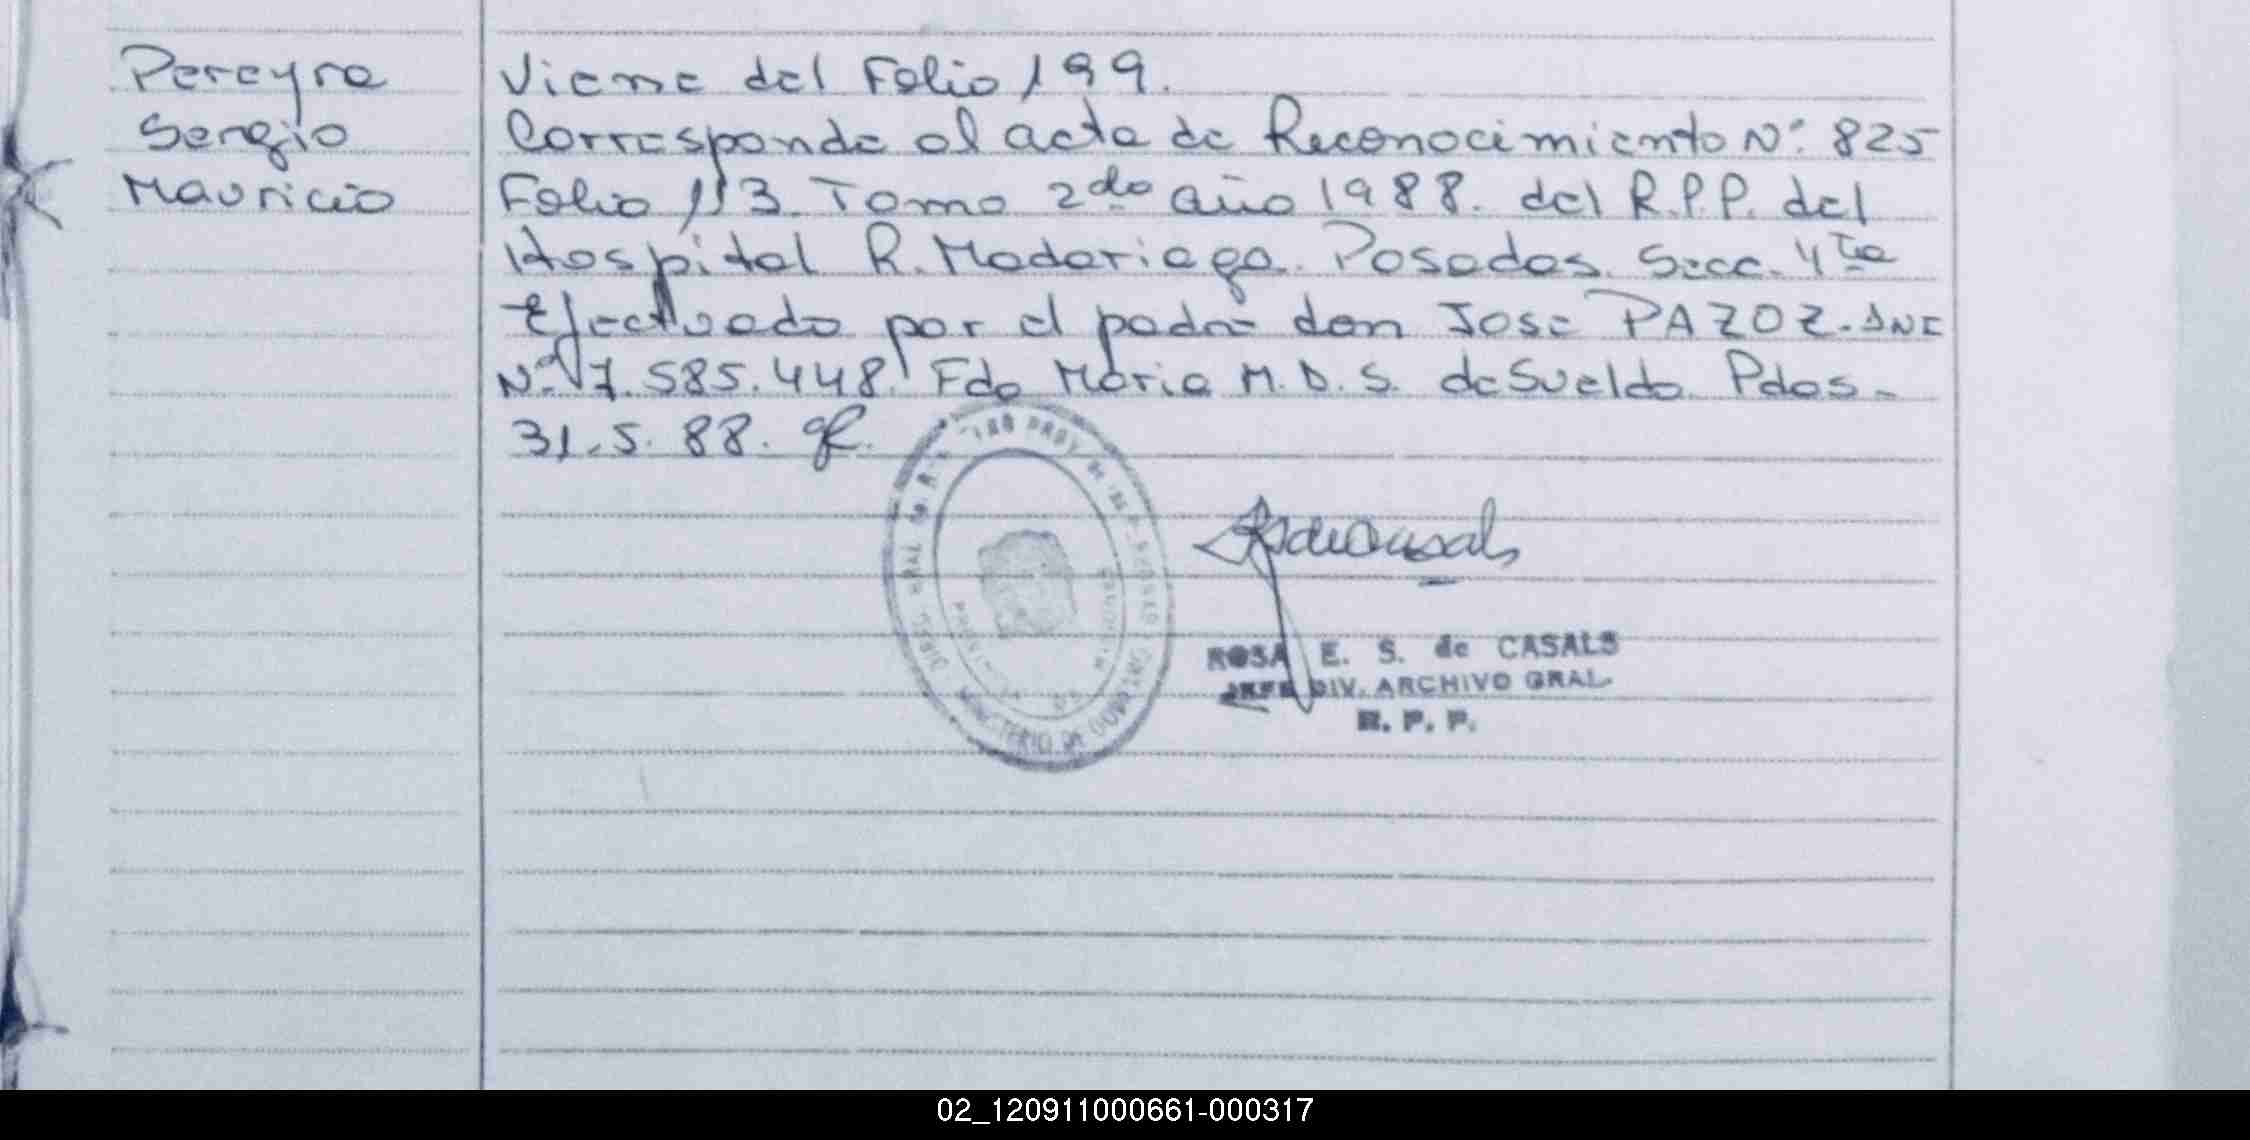 Pereyra
Sergio
Mauricio
Viene del Folio 199.
Corresponde al acta de Reconocimiento N° 825
Folio 113. Tomo 2do año 1988. del R.P.P. del
Hospital R. Madariaga. Posadas. Secc. 4ta
Efectuado por el padre don Jose PAZOZ. DNI
N° 7.585.448. Fdo Maria M. D. S. de Sueldo. Pdas-
31.5.88.
ROSA E. S. de CASALS
JEFE DIV. ARCHIVO GRAL.
R. P. P.
MINISTERIO DE GOBIERNO
02_120911000661-000317